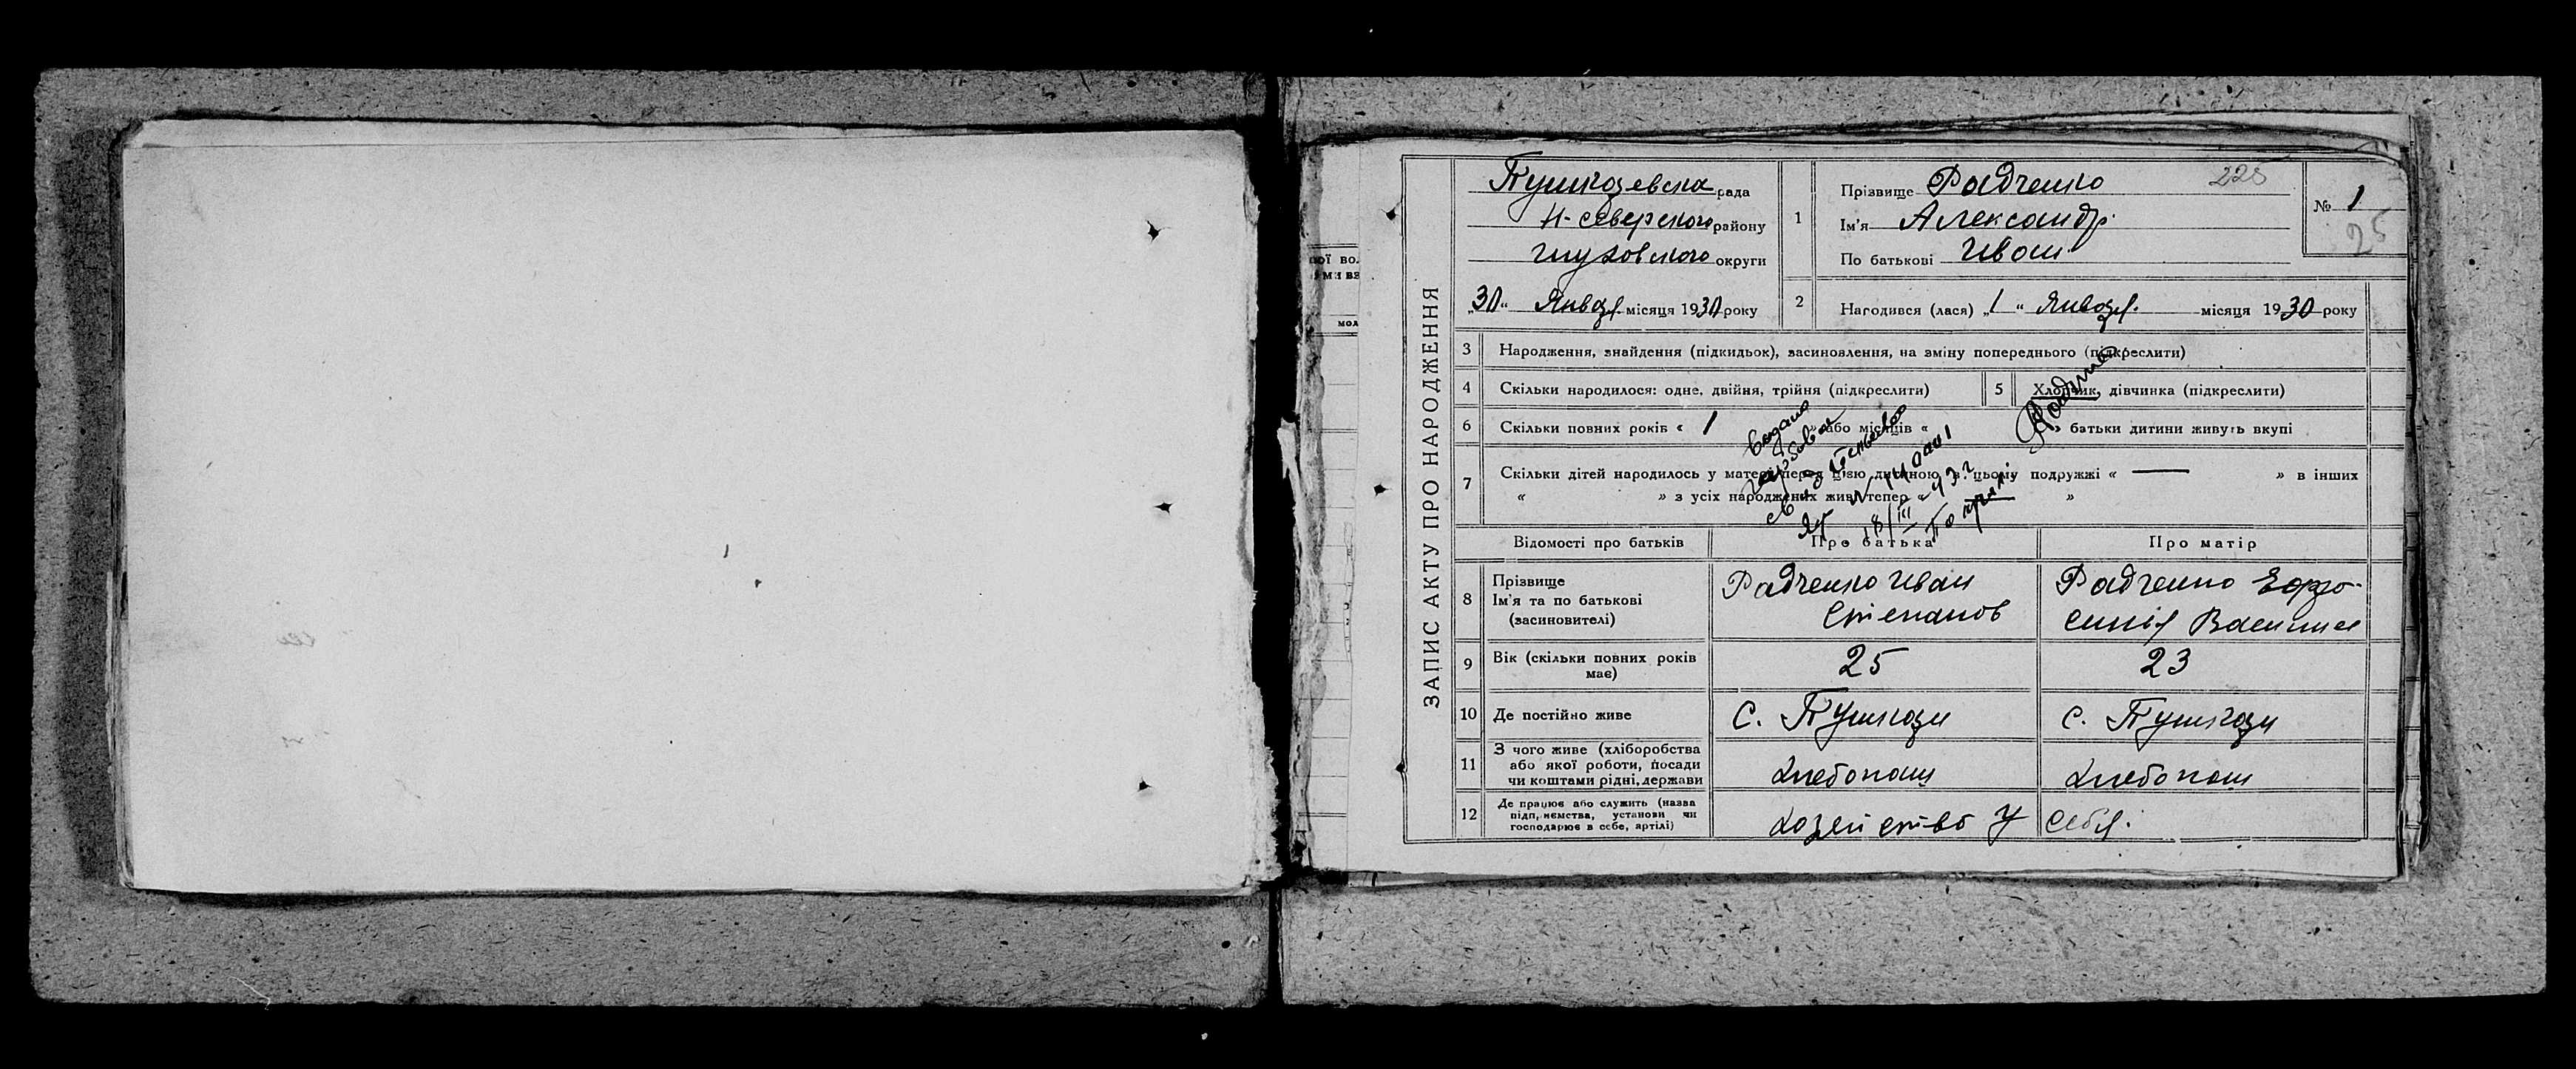 ЗАПИС АКТУ ПРО НАРОДЖЕННЯ
Пушкаревска рада
Н-Северского району
Глуховского округи
„30“ Январ. місяця 1930 року
1
Прізвище Радченко
225
Ім'я Александр
По батькові Иван.
№ 1
25
2
Народився (лася) „1“ Январ. місяця 1930 року
3 Народження, знайдення (підкидьок), засиновлення, на зміну попереднього (підкреслити)
4 Скільки народилося: одне, двійня, трійня (підкреслити)
5 Хлопчик, дівчинка (підкреслити)
6 Скільки повних років « 1 » або місяців « » батьки дитини живуть вкупі
7 Скільки дітей народилось у матері перед цією дитиною в цьому подружжі « — » в інших
« » з усіх народжених живі тепер « »
Відомості про батьків
Про батька
Про матір
8 Прізвище
Ім'я та по батькові
(засиновителі)
Радченко Иван
Степанов
Радченко Ефро-
синія Василье
9 Вік (скільки повних років має)
25
23
10 Де постійно живе
с. Пушкари
с. Пушкари
11 З чого живе (хліборобства або якої роботи, посади чи коштами рідні, держави
хлебопаш
хлебопаш
12 Де працює або служить (назва підприємства, установи чи господарює в себе, артілі)
хозейство у себя.